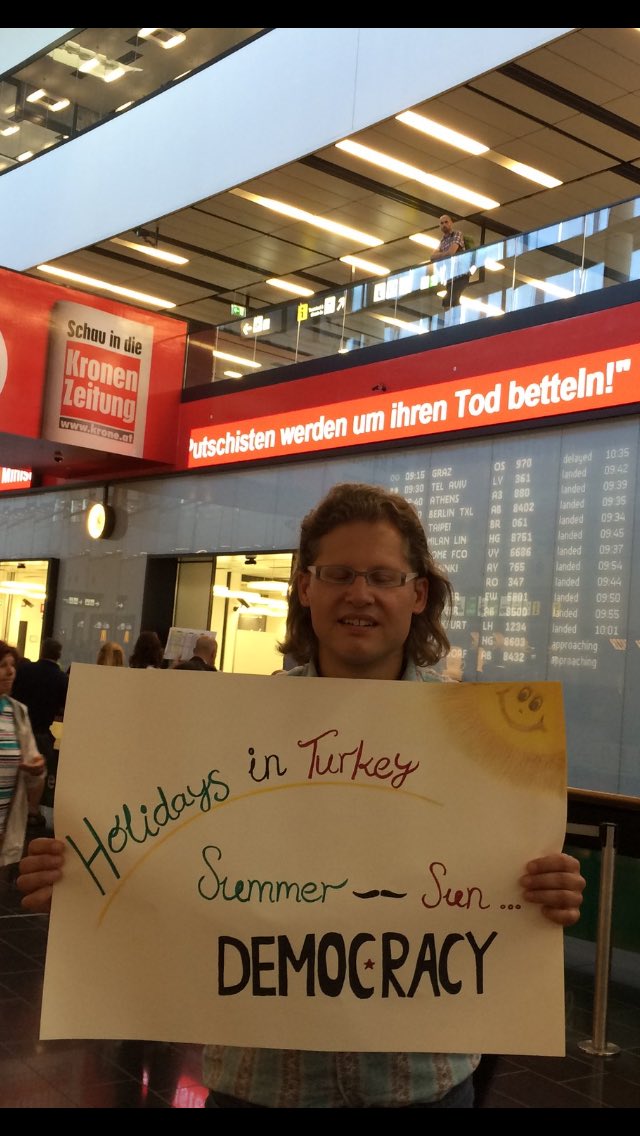 Schau in die
Kronen
Zeitung
www.krone.at
Putschisten werden um ihren Tod betteln!"
09:15 GRAZ OS 970 delayed 10:35
09:30 TEL AVIV LY 361 landed 09:42
ATHENS A3 880 landed 09:39
BERLIN TXL AB 8402 landed 09:35
TAIPEI BR 061 landed 09:34
MILAN LIN HG 8751 landed 09:45
VY 6686 landed 09:37
RY 765 landed 09:54
RO 347 landed 09:44
landed 09:50
LH 1234 landed 09:55
HG 8603 landed 10:01
AB 8432 approaching
approaching
Holidays in Turkey
Summer Sun ...
DEMOCRACY